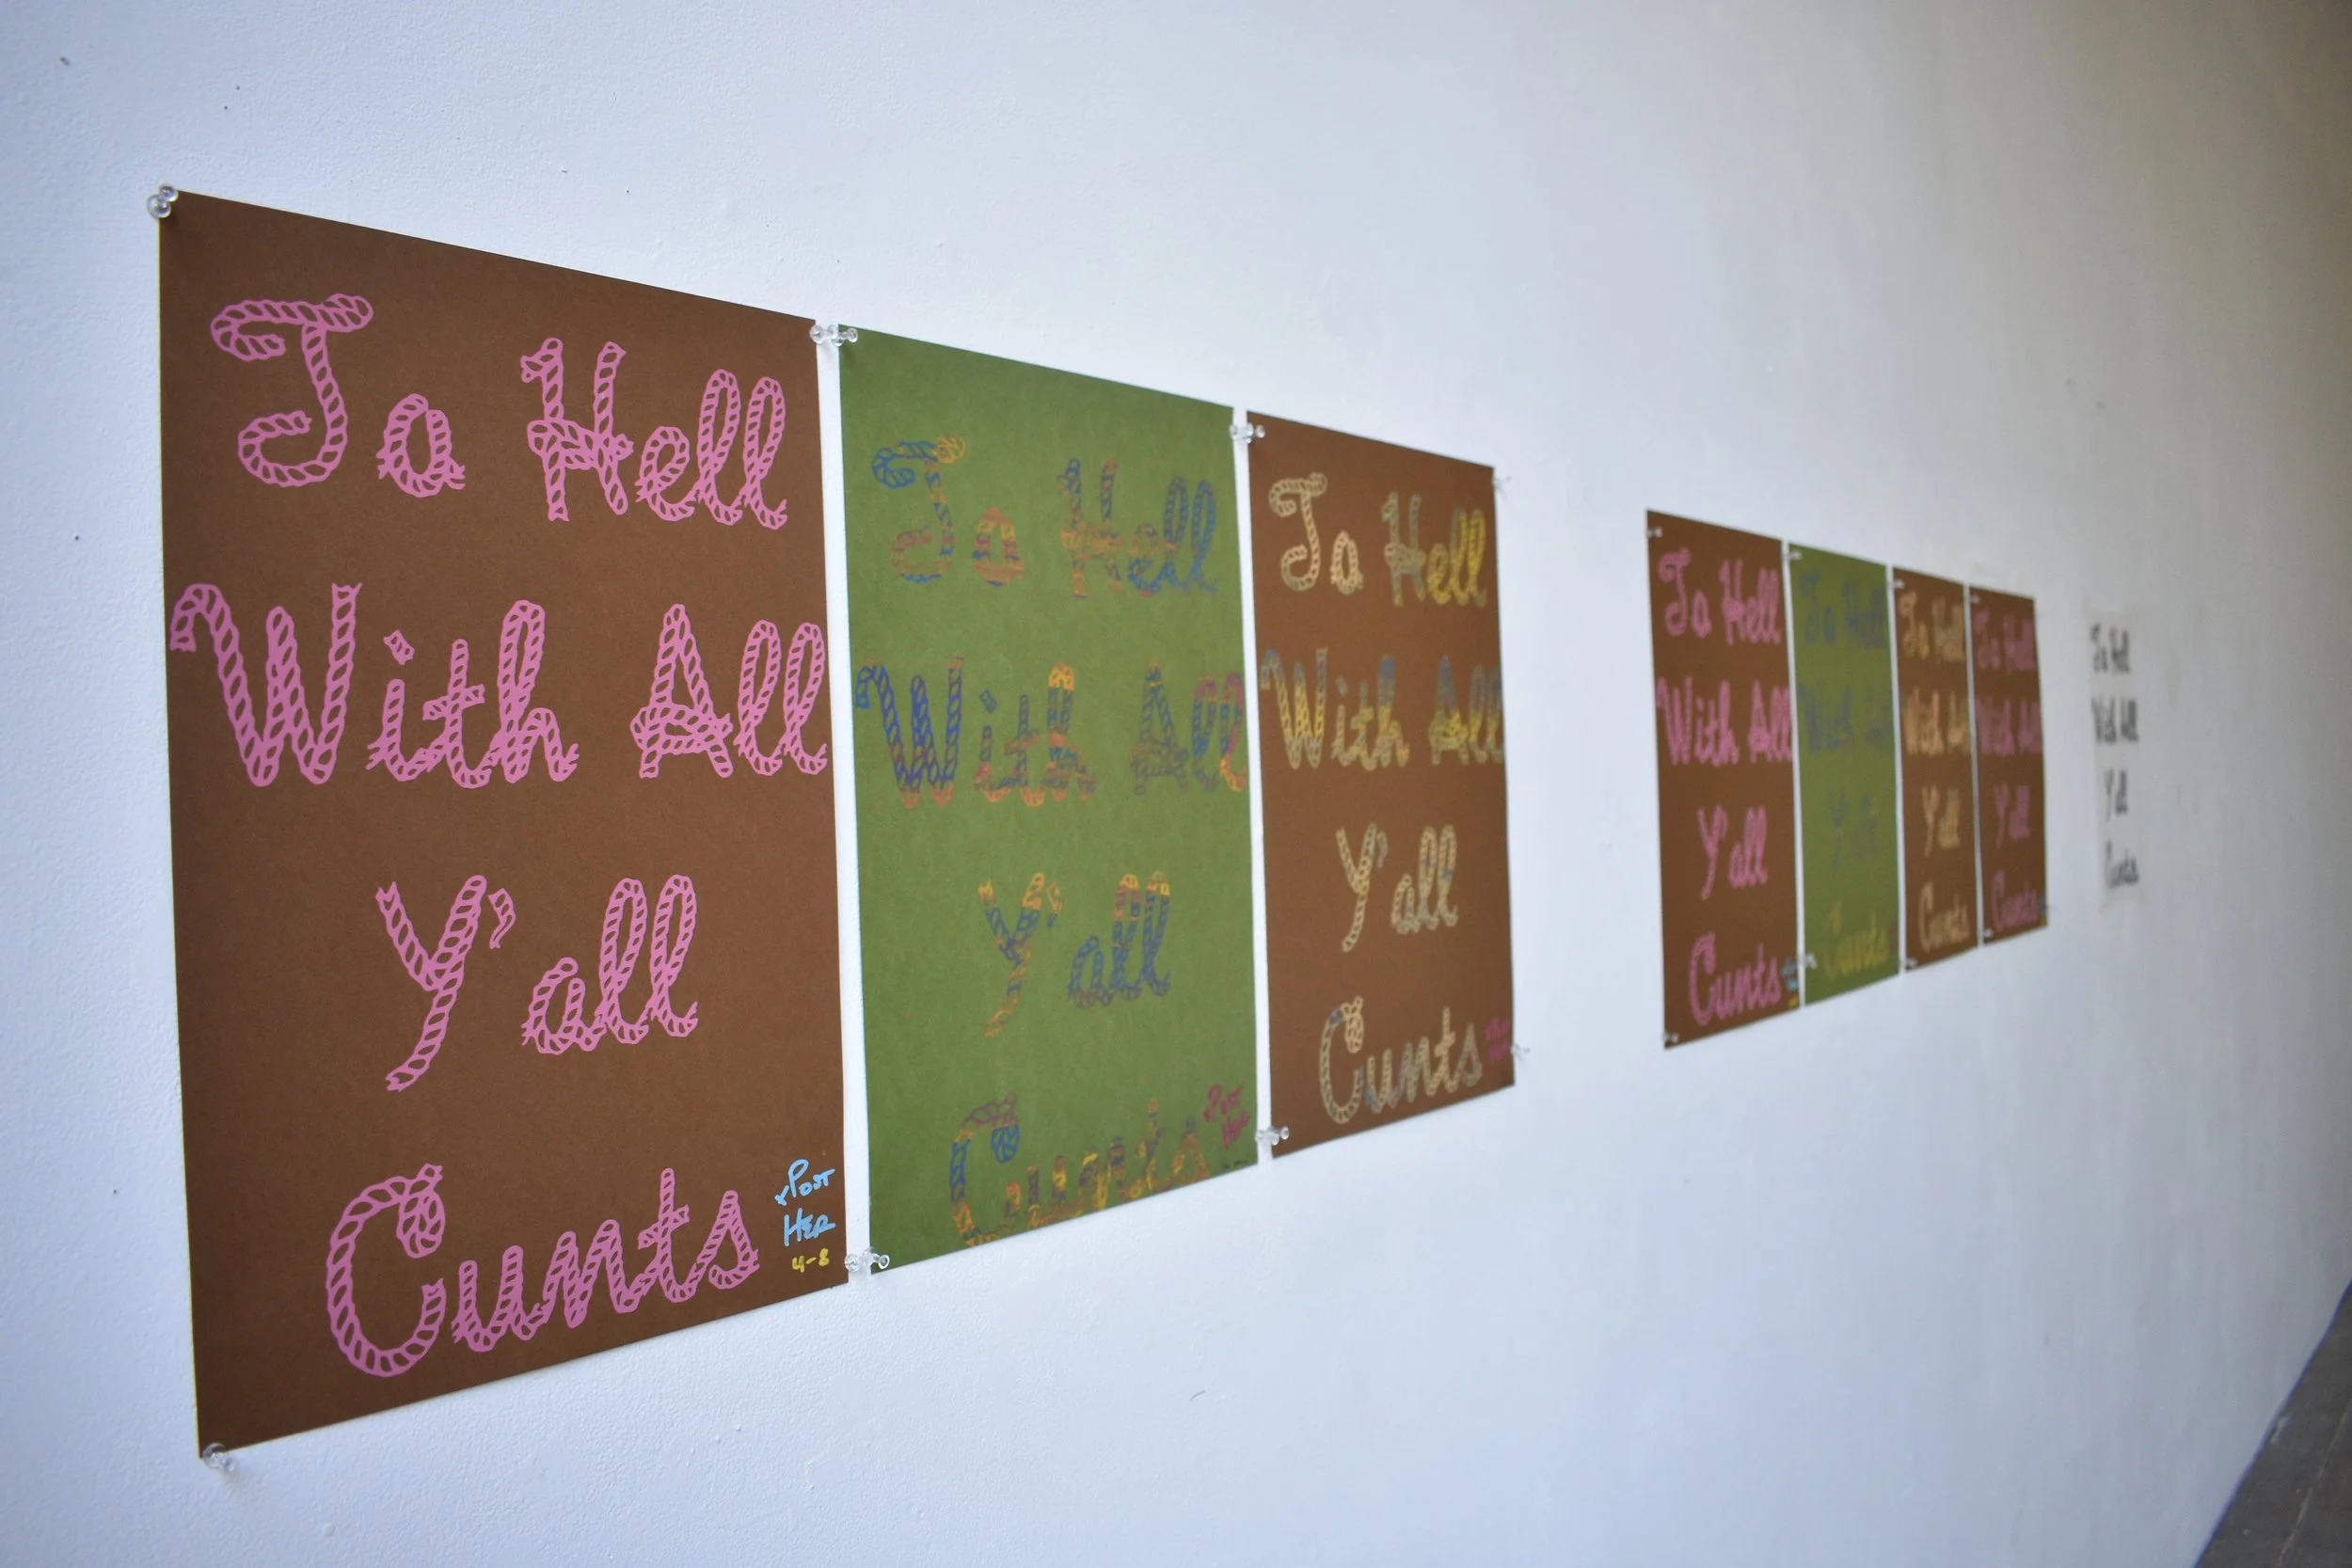 To Hell
With All
Y'all
Cunts
Post
Her
4-8
To Hell
With All
Y'all
Cunts
Post
Her
To Hell
With All
Y'all
Cunts
To Hell
With All
Y'all
Cunts
To Hell
With All
Y'all
Cunts
To Hell
With All
Y'all
Cunts
To Hell
With All
Y'all
Cunts
To Hell
With All
Y'all
Cunts